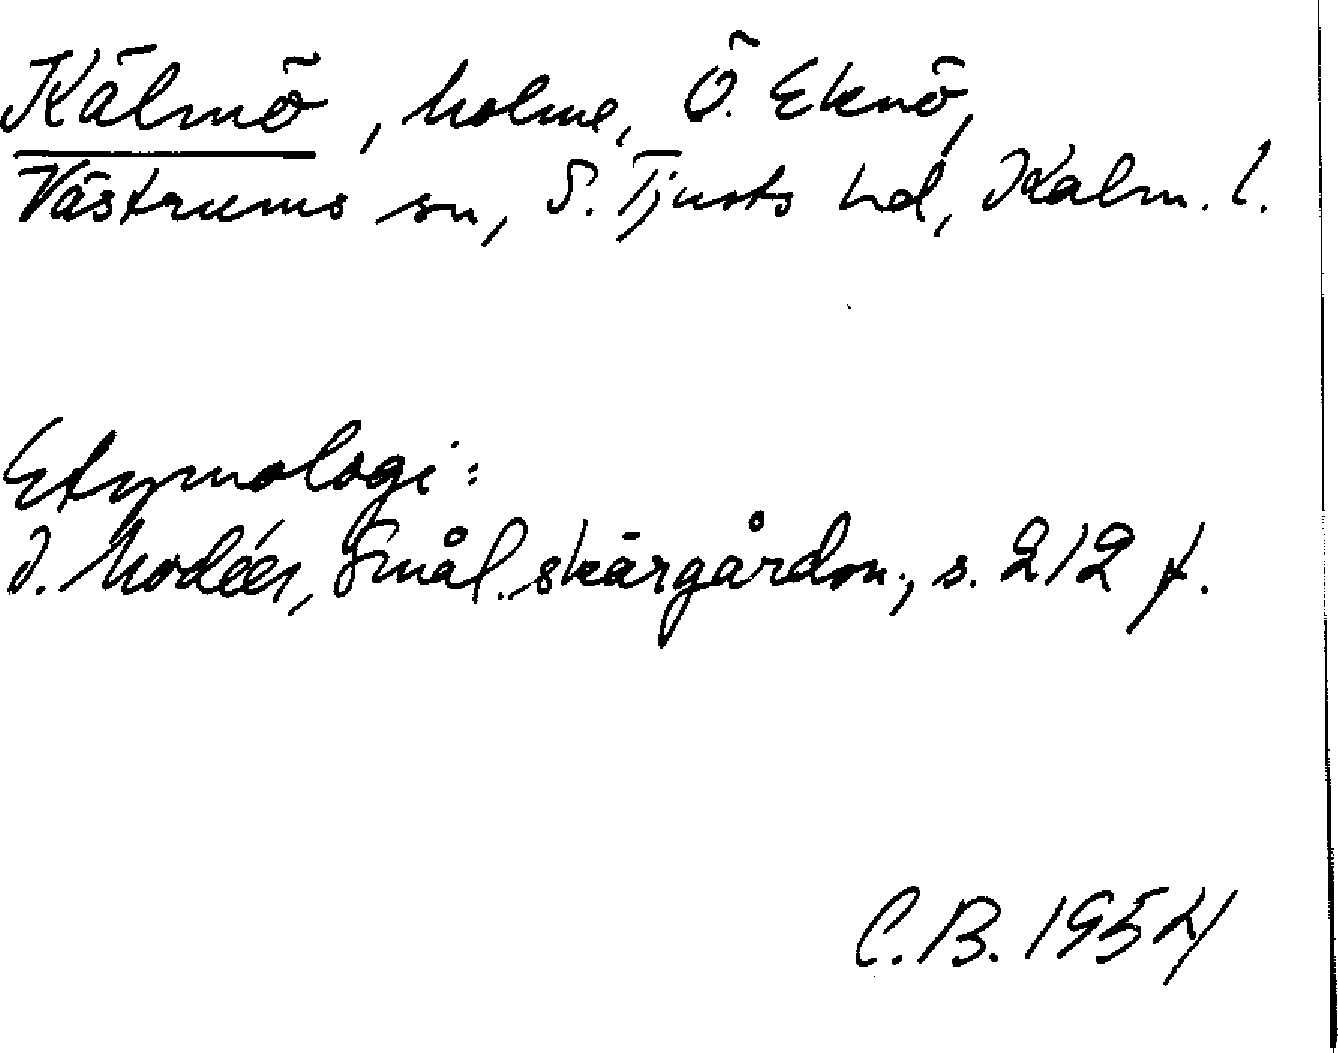 Kälmö, holme, Ö. Eknö,
Västrums sn, S. Tjusts hd, Kalm. l.
Etymologi:
I. Modéer, Smål. skärgårdsn., s. 212 f.
C.B. 1954